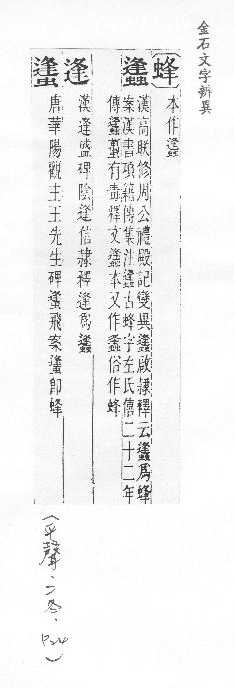 金石文字辨異
蜂 本作蠭
蠭 漢高眹修周公禮殿記變異蠭啟隸釋云蠭為蜂
案漢書項籍傳集注蠭古蜂字左氏僖二十二年
傳蠭蠆有毒釋文蠭本又作蠭俗作蜂
逢 漢逢盛碑陰逢信隸釋逢為蠭
䗬 唐華陽觀主王先生碑䗬飛案䗬即蜂
(平聲、二冬、P24)